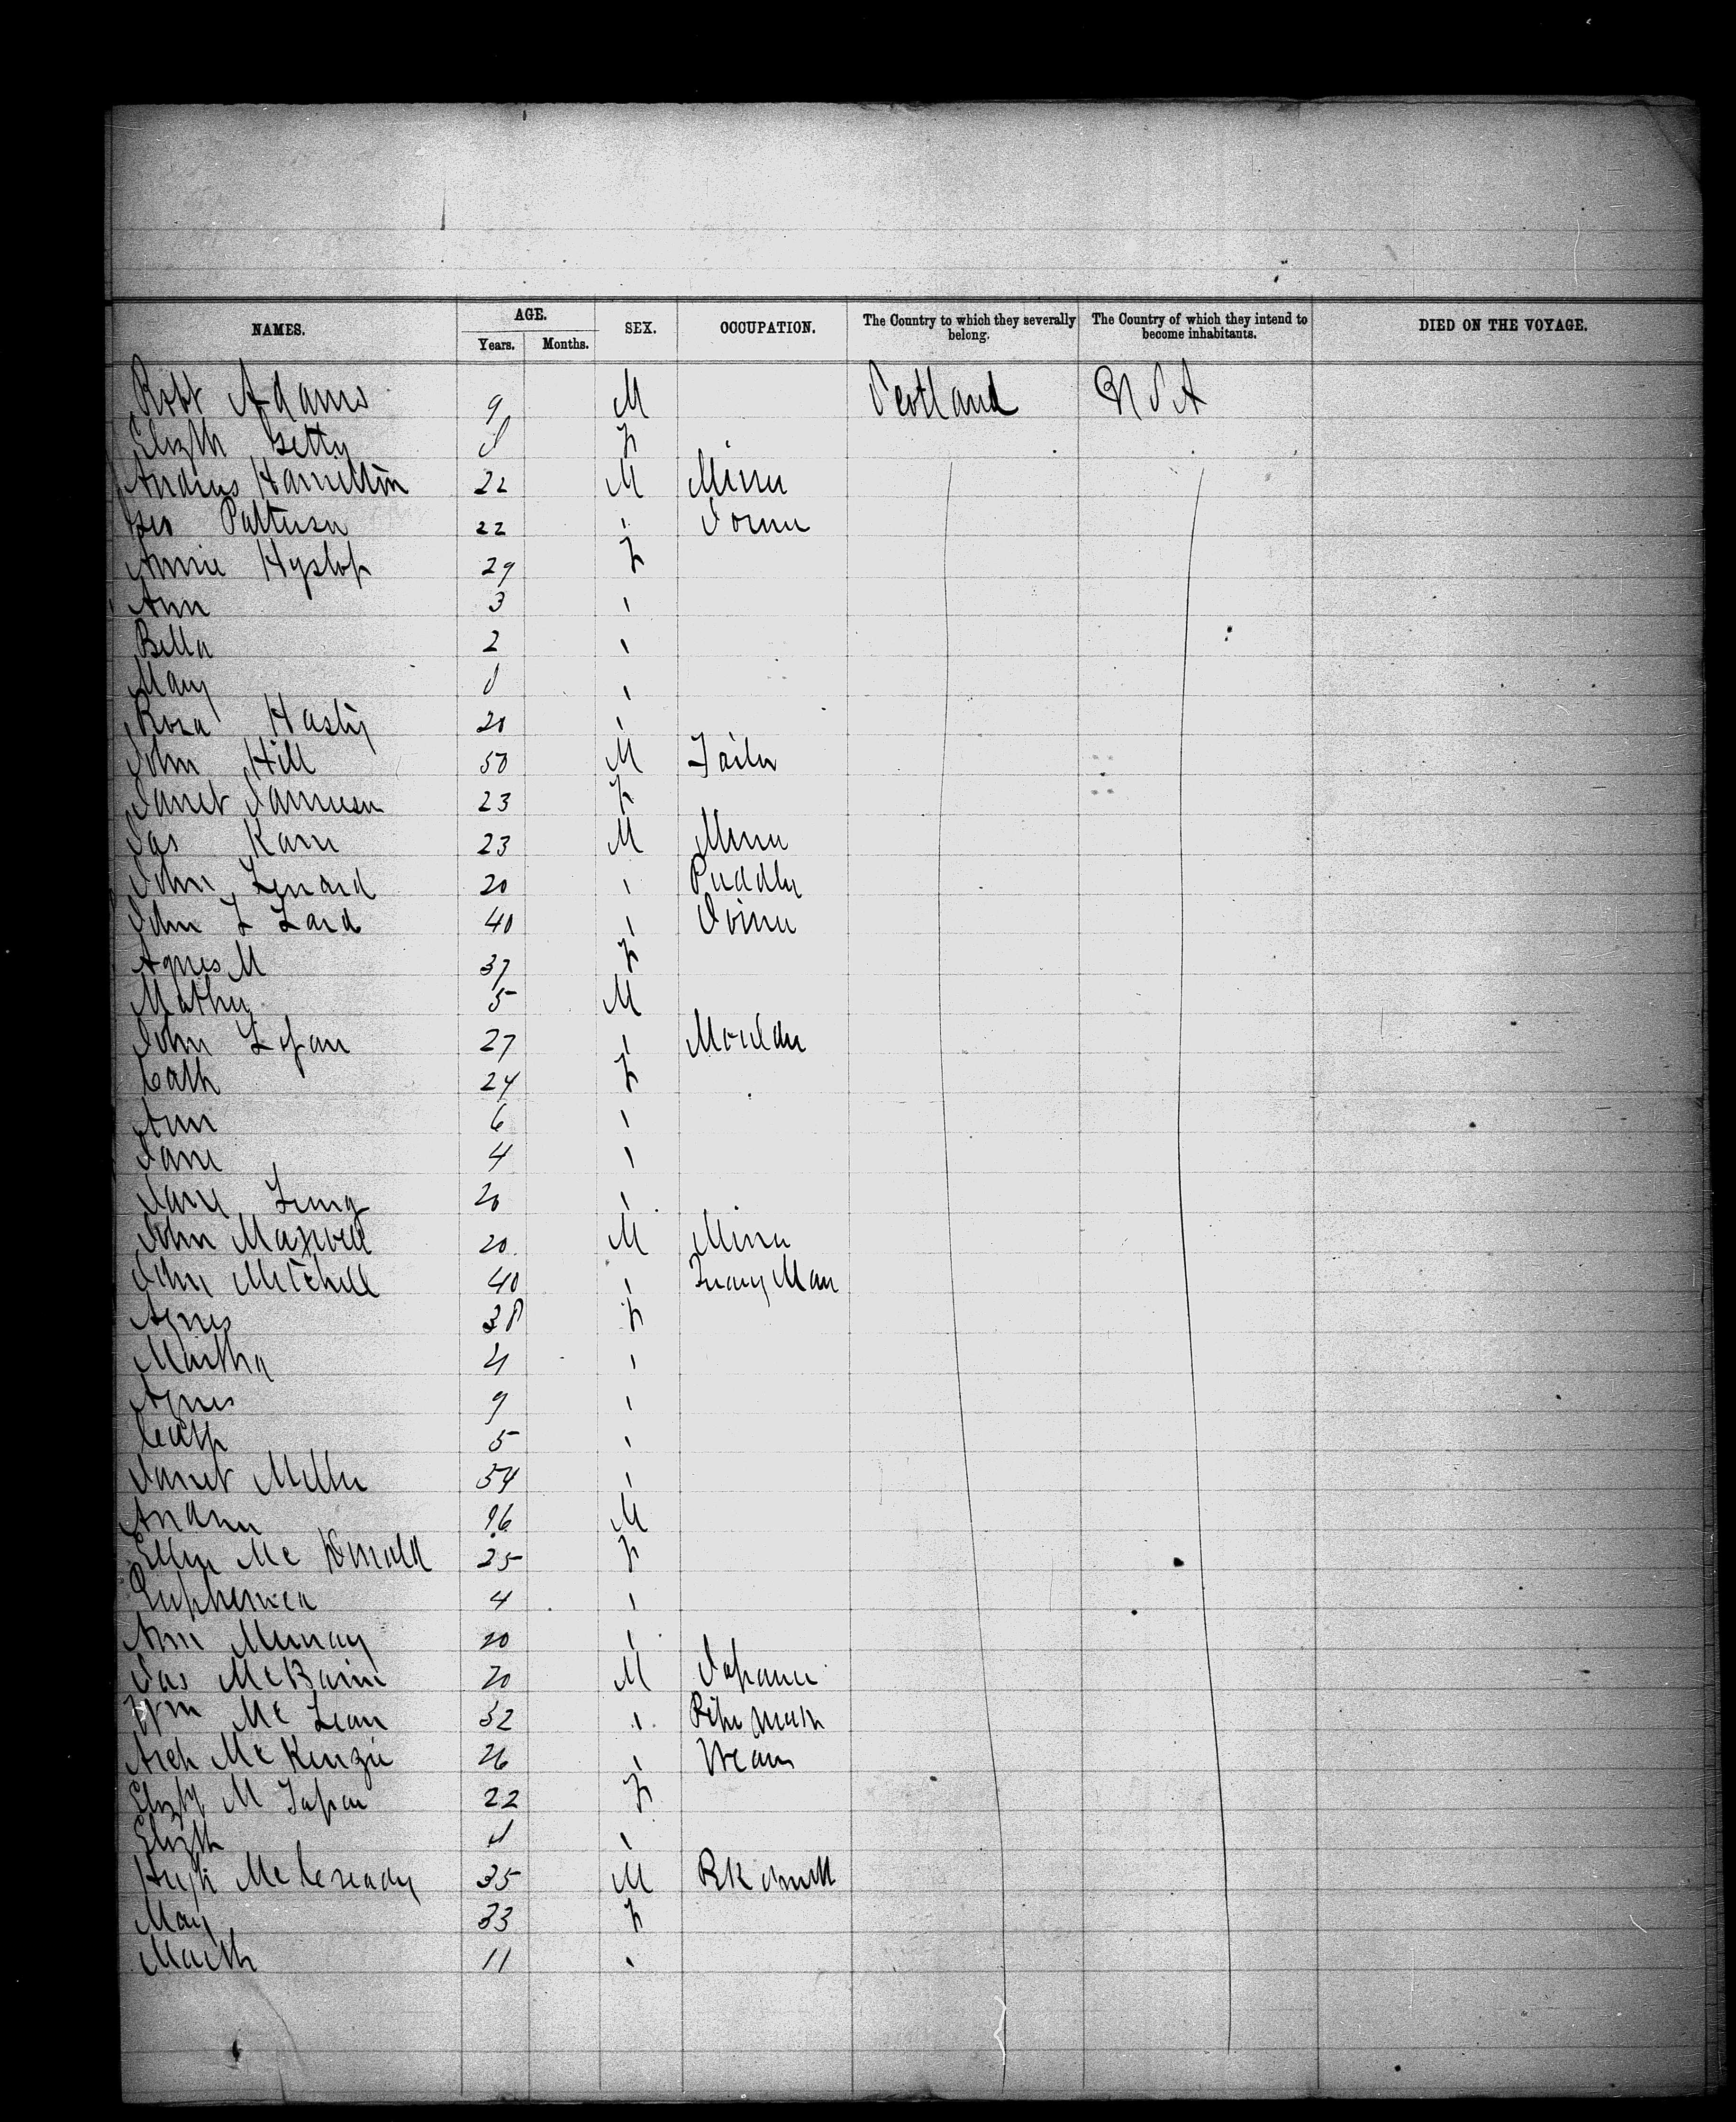 NAMES. AGE. SEX. OCCUPATION. The Country to which they severally belong. The Country of which they intend to become inhabitants. DIED ON THE VOYAGE.
Years. Months.
Robt Adams 9 M Scotland U S A
Elizth Getty F
Andrew Hamilton 22 M Miner
Geo Patterson 22 " Joiner
Annie Hyslop 29 F
Ann 3 "
Bella 2 "
Mary "
Rosa Hasty 20 "
John Hill 50 M Tailor
Janet Jamieson 23 F
Jas Karr 23 M Miner
John Lenard 20 " Puddler
John L Lard 40 " Joiner
Agnes M 37 F
Mathew 5 M
John Logan 27 " Moulder
Cath 24 F
Ann 6 "
Jane 4 "
Jane 20 "
John Maxwell 20 M Miner
John Mitchell 40 " Man
Agnes 38 F
Martha "
Agnes 9 "
Cath 5 "
Janet Miller 54 "
Andrew 16 M
Ellen Mc Donald 25 F
Euphemia 4 "
Ann Murray 20 "
Jas McBain 20 M Japaner
Wm Mc Lean 32 "
Arch McKenzie 26 "
Elizth M 22 F
Elizth "
Hugh McCready 35 M
May 33 F
Marth 11 "